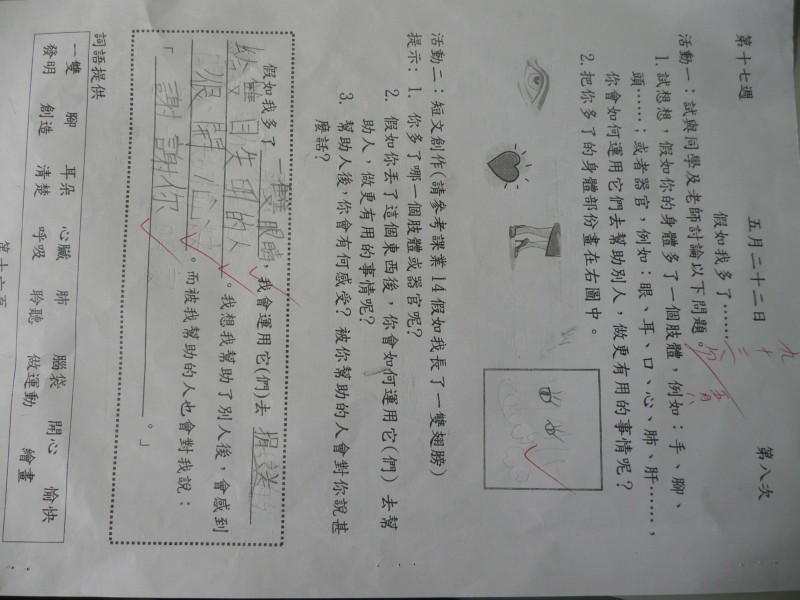 第十七週 五月二十二日 第八次
假如我多了……
活動一：試與同學及老師討論以下問題。
1. 試想想，假如你的身體多了一個肢體，例如：手、腳、
頭……；或者器官，例如：眼、耳、口、心、肺、肝……，
你會如何運用它們去幫助別人，做更有用的事情呢？
2. 把你多了的身體部份畫在右圖中。
活動二：短文創作(請參考課業 14 假如我長了一雙翅膀)
提示： 1. 你多了哪一個肢體或器官呢？
2. 假如你丟了這個東西後，你會如何運用它(們) 去幫
助人，做更有用的事情呢？
3. 幫助人後，你會有何感受？被你幫助的人會對你說甚
麼話？
假如我多了 一雙眼睛，我會運用它(們)去 捐送
給失明的人。我想我幫助了別人後，會感到
很開心。而被我幫助的人也會對我說：
「謝謝你。」
詞語提供
一雙 腳 耳朵 心臟 肺 腦袋 開心 愉快
發明 創造 清楚 呼吸 聆聽 做運動 繪畫